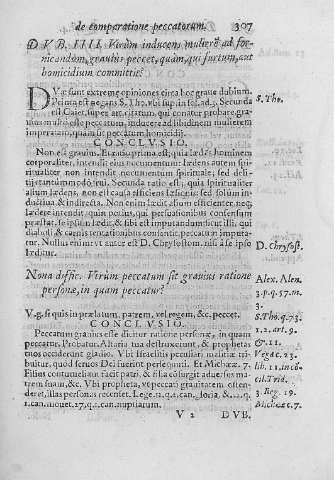 de comparatione peccatorum. 307
D V B. IIII. Vtrùm inducens mulierẽ ad for-
nicandum, grauiùs peccet, quàm, qui furtum, aut
homicidium committit?
DVæ sunt extremę opiniones circa hoc graue dubium.
Prima est negans S. Tho. vbi sup. in sol. ad 3. Secunda
est Caiet. super art. citatum, qui conatur probare gra-
uius malum esse peccatum, inducere ad libidinem mulierem
imperatam, quàm sit peccatum homicidij.
S. Tho.
CONCLVSIO.
Non est grauius. Et ratio prima est; quia lædens hominem
corporaliter, intendit eius nocumentum: lædens autem spiri-
tualiter non intendit nocumentum spirituale; sed
Secunda ratio est; quia spiritualiter
alium lædens, non est causa efficiens læsionis: sed solum in-
ductiua & indirecta. Non enim lædit alium efficienter, neq;
lædere intendit: quin potius, qui persuasionibus consensum
præstat, se ipsum lædit, & sibi est imputandum: sicut illi, qui
diaboli & carnis tentationibus consentit, peccatum imputa-
tur. Nullus enim vt autor est D. Chrysostom. nisi à se ipso
læditur.
D. Chrysost.
Nona diffic. Vtrùm peccatum sit grauius ratione
personæ, in quam peccatur?
V.g. si quis in prælatum, patrem, vel regem, &c. peccet.
CONCLVSIO.
Peccatum grauius esse dicitur ratione personæ, in quam
peccatur. Probatur. Altaria tua destruxerunt, & prophetas
tuos occiderunt gladio. Vbi Israelitis peculiari malitiæ tri-
buitur, quod seruos Dei fuerint persequuti. Et Michææ. 7.
Filius contumeliam facit patri, & filia consurgit aduersus ma-
trem suam, &c. Vbi propheta, vt peccati grauitatem osten-
deret, illas personas recenset. Lege. 11. q. 1. can. & 
1. can. 27. q. 1. can. nuptiarum.
Alex. Alen.
3. p. q. 57. m.
3.
S. Tho. q. 73.
1. 2. art. 9.
& 11.
Vega c. 23.
lib. 11. in cõ-
cil. Trid.
3. Reg. 19.
Michææ. 7.
V 2 DVB.